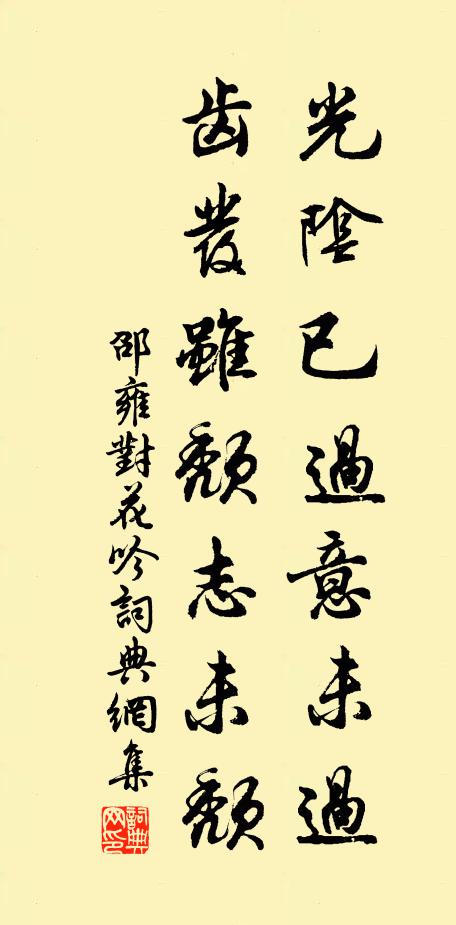 光陰已過意未過
齿發雖頹志未頹
邵雍對花吟詞典網集
詞典网印